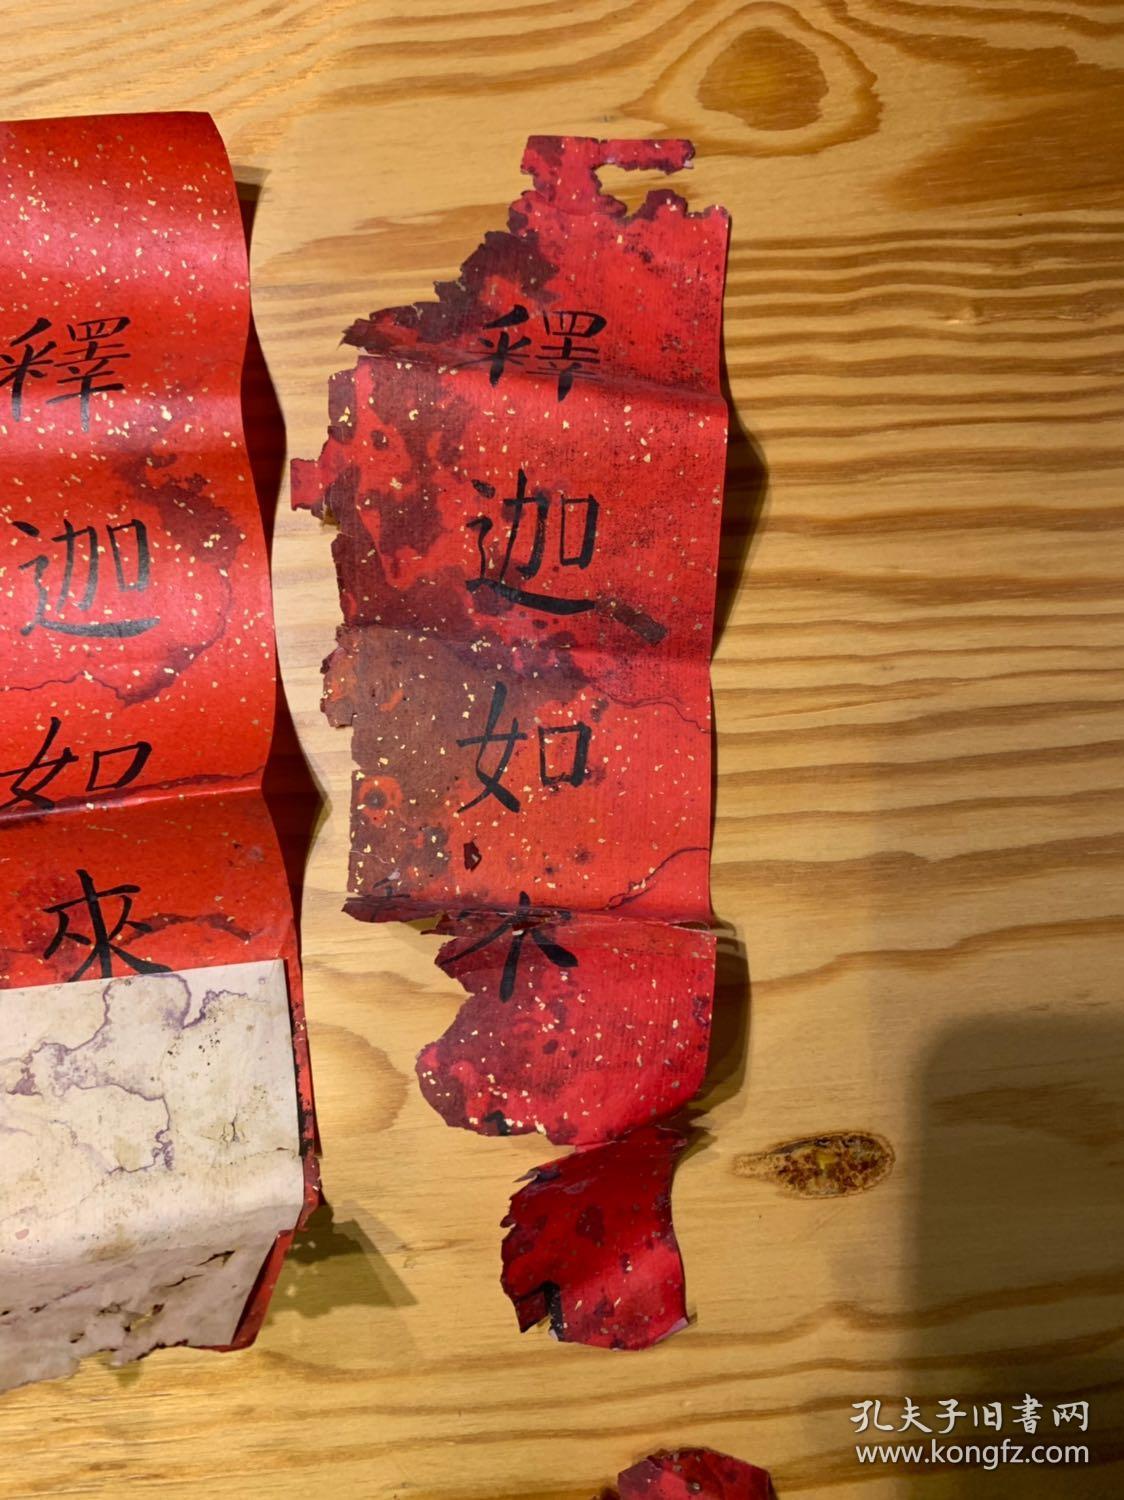 釋迦如
釋迦如來
孔夫子旧書网
www.kongfz.com